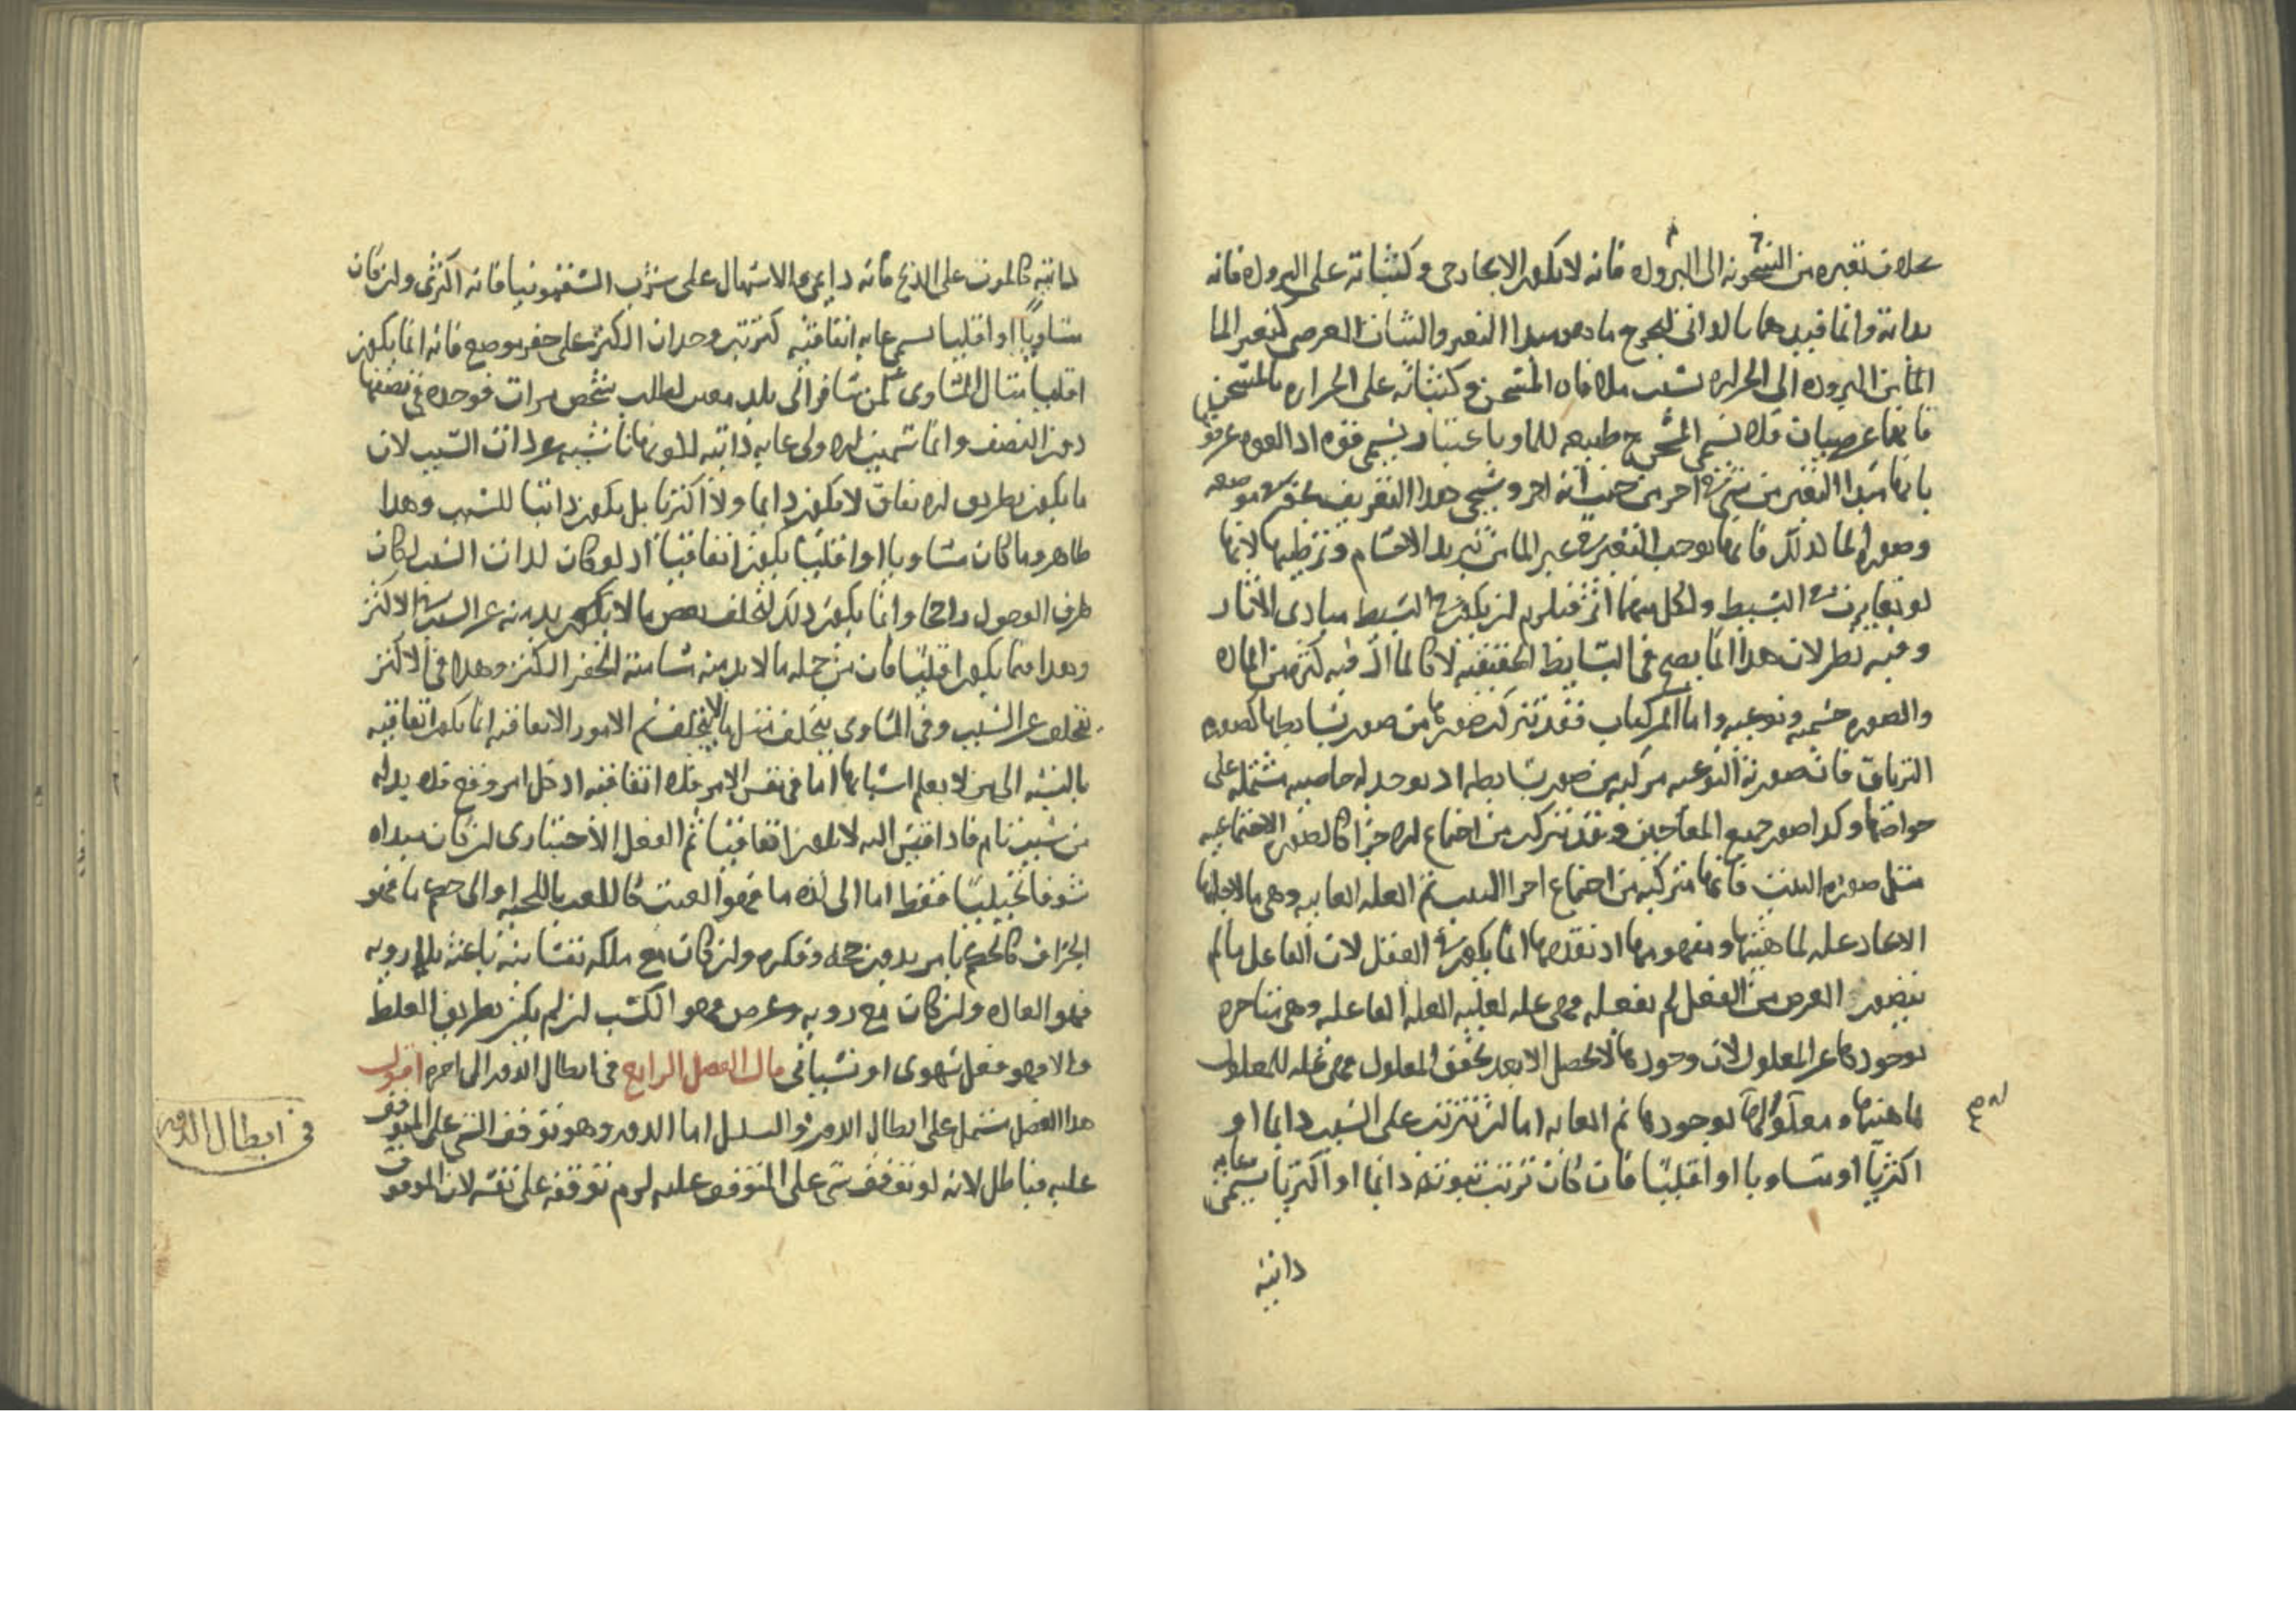 بخلاف تغيره من السخونة الى البروده فانه لا يكون الا بخارجى وكثباته على البروده فانه
بذاته وانما قيدهما بالذاتى ليخرج ما هو مبدا التغير والثبات العرضى كتغير الما
الما من البروده الى الحراره بسبب ملاقاه المسخن وكثباته على الحراره بالمسخن
فانهما عرضيان فلا يسمى المسخن ح طبيعه للما وباعتبار يسمى قوه اذ القوه عرفوها
بانها مبدا التغير من شى فى اخر من حيث انه اخر وسيجى هذا التعريف بحقيقه موضعه
وصوره لما لذلك فانها توجب التغير فى غير المامن تبريد الاجسام وترطيبها لانها
لو تغايرت فى البسيط ولكل منهما اثر فيلزم ان يكون فى البسيط مبادى الاثار
وفيه نظر لان هذا انما يصح فى البسايط الحقيقيه لا كالما اذ فيه كثره من الماده
والصوره جسميه ونوعيه واما المركبات فقد تتركب صورها من صور بسايطها كصوره
الترياق فان صورته النوعيه مركبه من صور بسايطه اذ يوجد له خاصيه مشتمله على
خواصها وكذا صور جميع المعاجين وقد تتركب من اجتماع الاجزا كالصور الاجتماعيه
مثل صوره البيت فانها متركبه من اجتماع اجزا البيت ثم العله الغاييه وهى ما لاجلها
الايجاد عله لماهيتها ومفهومها اذ تقدمها انما يكون فى العقل لان الفاعل ما لم
يتصور الغرض من الفعل لم يفعله فهى عله لعليه العله الفاعله وهى متاخره
بوجودها عن المعلول لان وجودها لا يحصل الا بعد تحقق المعلول فهى عله للمعلول
بماهيتها ومعلوله لوجودها ثم الغايه اما ان تترتب على السبب دايما او
اكثريا او متساويا او اقليا فان كان ترتب ثبوته دائما او اكثريا يسمى غايه
ذاتيه
ذاتيه كالموت على الذبح فانه دايمى والاسهال على شرب السقمونيا فانه اكثرى وان كان
متساويا او اقليا يسمى غايه اتفاقيه كترتب وجدان الكنز على حفر موضع فانه انما يكون
اقليا مثال المتساوى كمن سافر الى بلد معين لطلب شخص مرات فوجده فى نصفها
دون النصف وانما سميت الاولى غايه ذاتيه لكونها ناشيه عن ذات السبب لان
ما يكون بطريق الاتفاق لا يكون دايما ولا اكثريا بل يكون ذاتيا للسبب وهذا
ظاهر وما كان متساويا او اقليا يكون اتفاقيا اذ لو كان لذات السبب لكان
طرف الوصول راجحا وانما يكون ذلك لتخلف بعض ما لا يكون بد منه عن السبب الاكثر
وهذا فيما يكون اقليا فان من جمله ما لا بد منه مسامته الحفر الكنز وهذا فى الاكثر
يتخلف عن السبب وفى المتساوى يتخلف مثل ما لا يتخلف ثم الامور الاتفاقيه انما يكون اتفاقيه
بالنسبه الى من لا يعلم اسبابها اما فى نفس الامر فلا اتفاقيه اذ كل امر وقع فلا بد له
من سبب تام فاذا اقيس اليه لا يكون اتفاقيا ثم الفعل الاختيارى ان كان مبداه
شوقا تخيليا فقط اما الى لذه ما فهو العبث كاللعب باللحيه او الى
الجزاف وان كان مع ملكه نفسانيه باعثه بلا رويه
فهو العاده وان كان مع رويه وغرض فهو الكسب ان لم يكن بطريق الغلط
والا فهو فعل شهوى او نسيانى قال الفصل الرابع فى ابطال الدور الى اخره اقول
هذا الفصل مشتمل على ابطال الدور والتسلسل اما الدور وهو توقف الشى على المتوقف
عليه فباطل لانه لو توقف شى على المتوقف عليه لزم توقفه على نفسه لان الموقوف
فى ابطال الدور